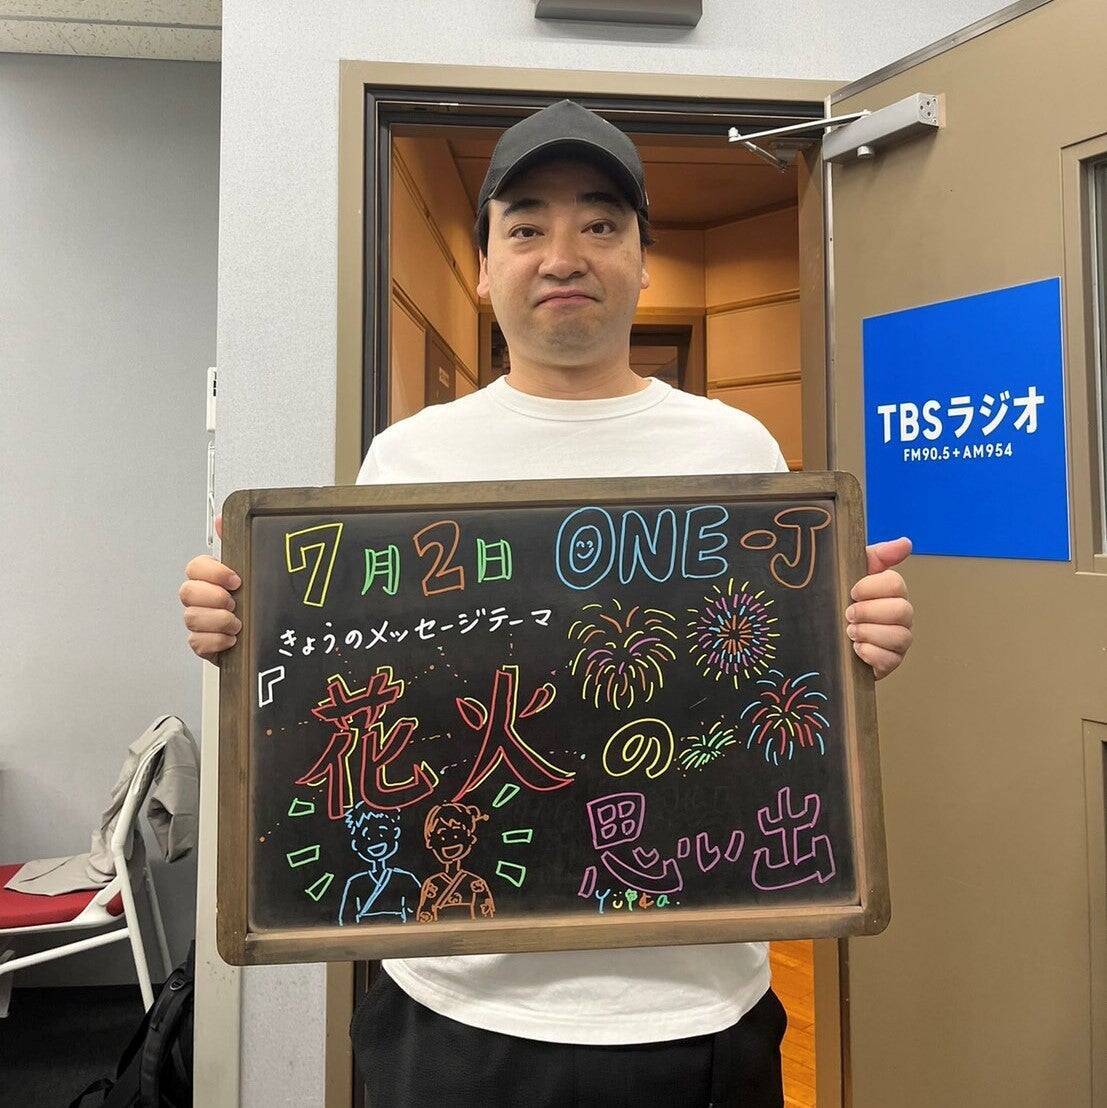 TBSラジオ
FM90.5+AM954
7月2日 ONE-J
きょうのメッセージテーマ
『花火の
思い出
Yuka.